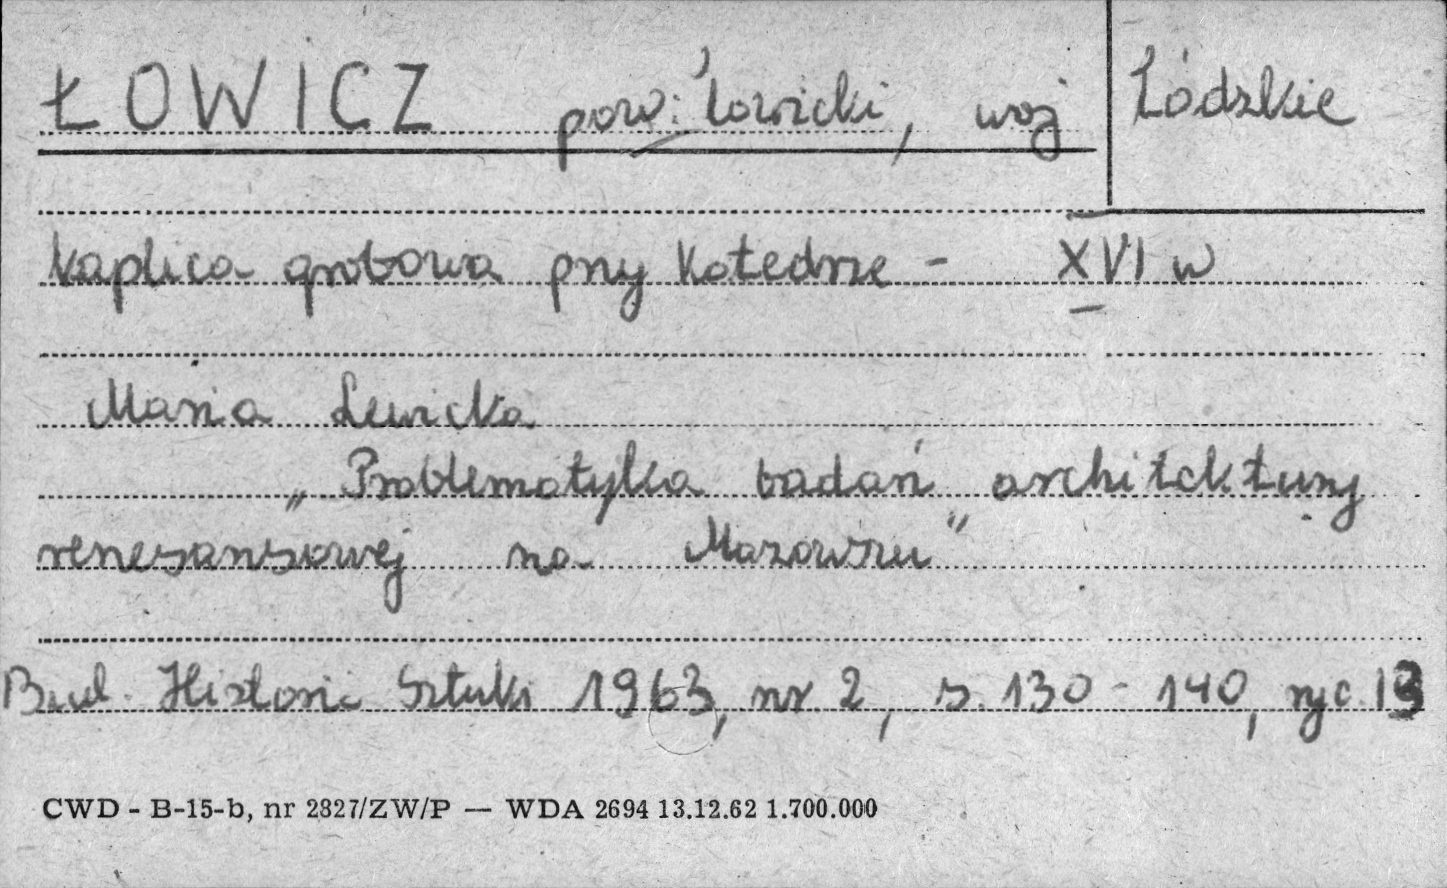 ŁOWICZ pow: łowicki, woj Łódzkie
Kaplica grobowa przy Katedrze - XVI w
Maria Lewicka
„Problematyka badań architektury
renesansowej na Mazowszu"
Biul. Historii Sztuki 1963, nr 2, s. 130 - 140, ryc. 19
CWD - B-15-b, nr 2827/ZW/P — WDA 2694 13.12.62 1.700.000